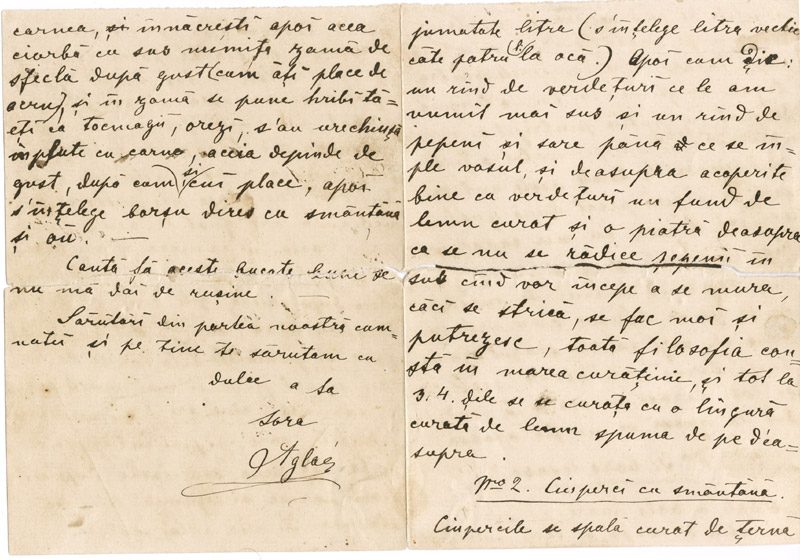 carnea, și înnăcrești apoi acea
ciorbă cu sub numita zamă de
sfeclă după gust (cum ăți place de
acru), și în zamă se pune hribi tă=
eți ca tocmagii, orezi, s'au urechiușă
împlute cu carne, aceia depinde de
gust, după cum și cui place, apoi
s'înțelege borșu dires cu smântână
și oŭ. —
Caută fă aceste bucate bune se
nu mă dai de rușine. —
Sărutări din partea noastră cum-
natii și pe tine te sărutam cu
dulce a ta
sora
Aglaé
jumatate litra (s'înțelege litra vechie
câte patru la ocă.) Apoi cum Dic:
un rînd de verdețuri ce le am
numit mai sus și un rînd de
pepeni și sare până ce se îm-
ple vasul, și deasupra acoperite
bine cu verdețuri un fund de
lemn curat și o piatră deasupra
ca se nu se rădice pepenii în
sus cînd vor începe a se mura,
căci se strică, se fac moi și
putrezesc, toată filosofia con-
stă în marea curățenie, și tot la
3.4. dile se se curața cu o lingură
curată de lemn spuma de pe dea-
supra.
Nro 2. Ciuperci cu smântână.
Ciupercile se spală curat de țernă